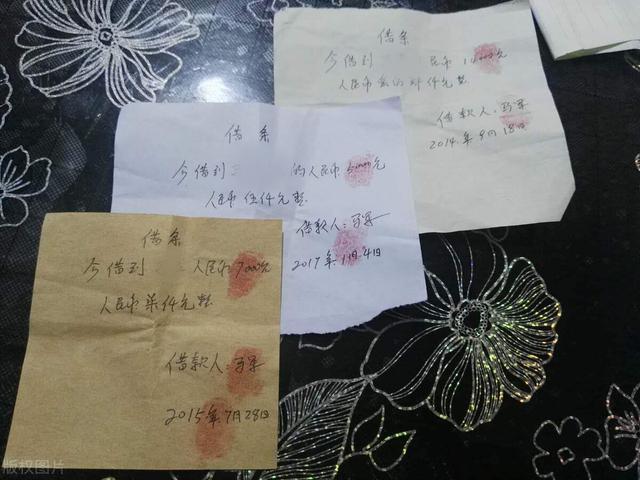 借条
今借到 民币 元
人民币 仟元整
借款人：
2014年9月18日
借条
今借到 的人民币5000元
人民币伍仟元整
借款人：
2017年1月4日
借条
今借到 人民币7000元
人民币柒仟元整
借款人：
2015年7月28日
版权图片